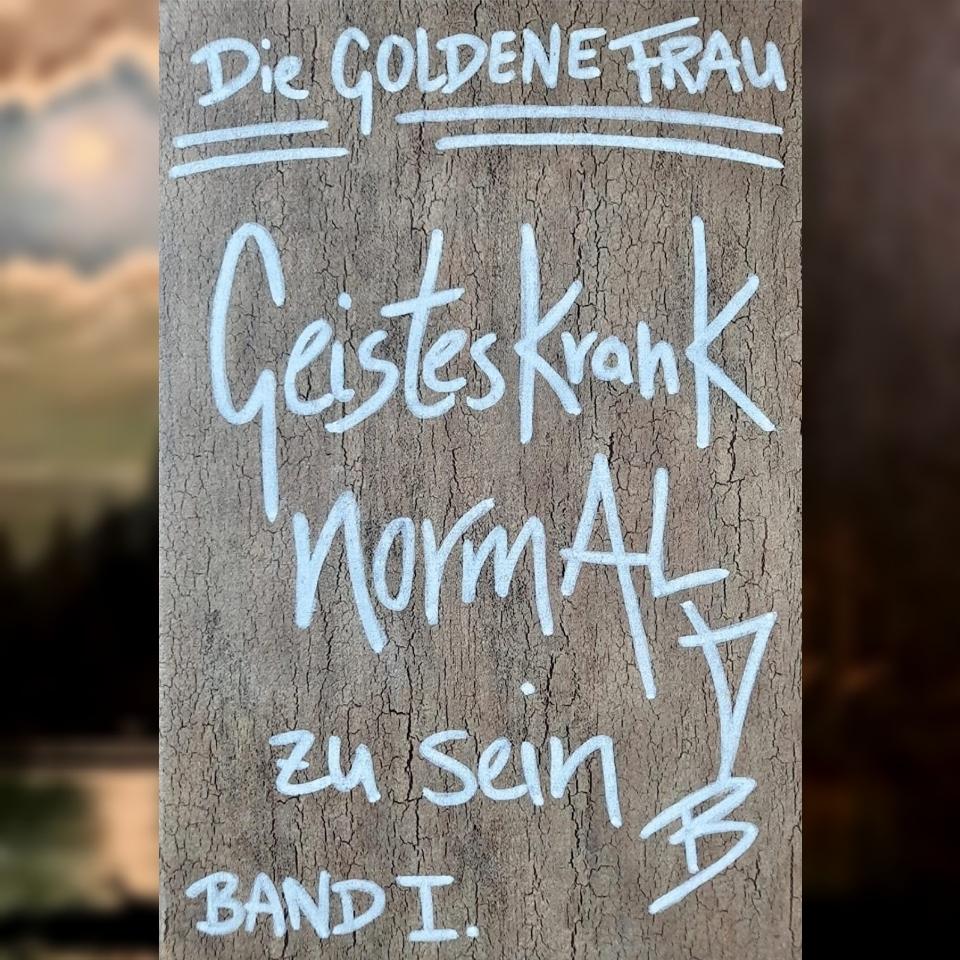 Die GOLDENE FRAU
GeistesKranK
normAL
zu sein
B
BAND I.